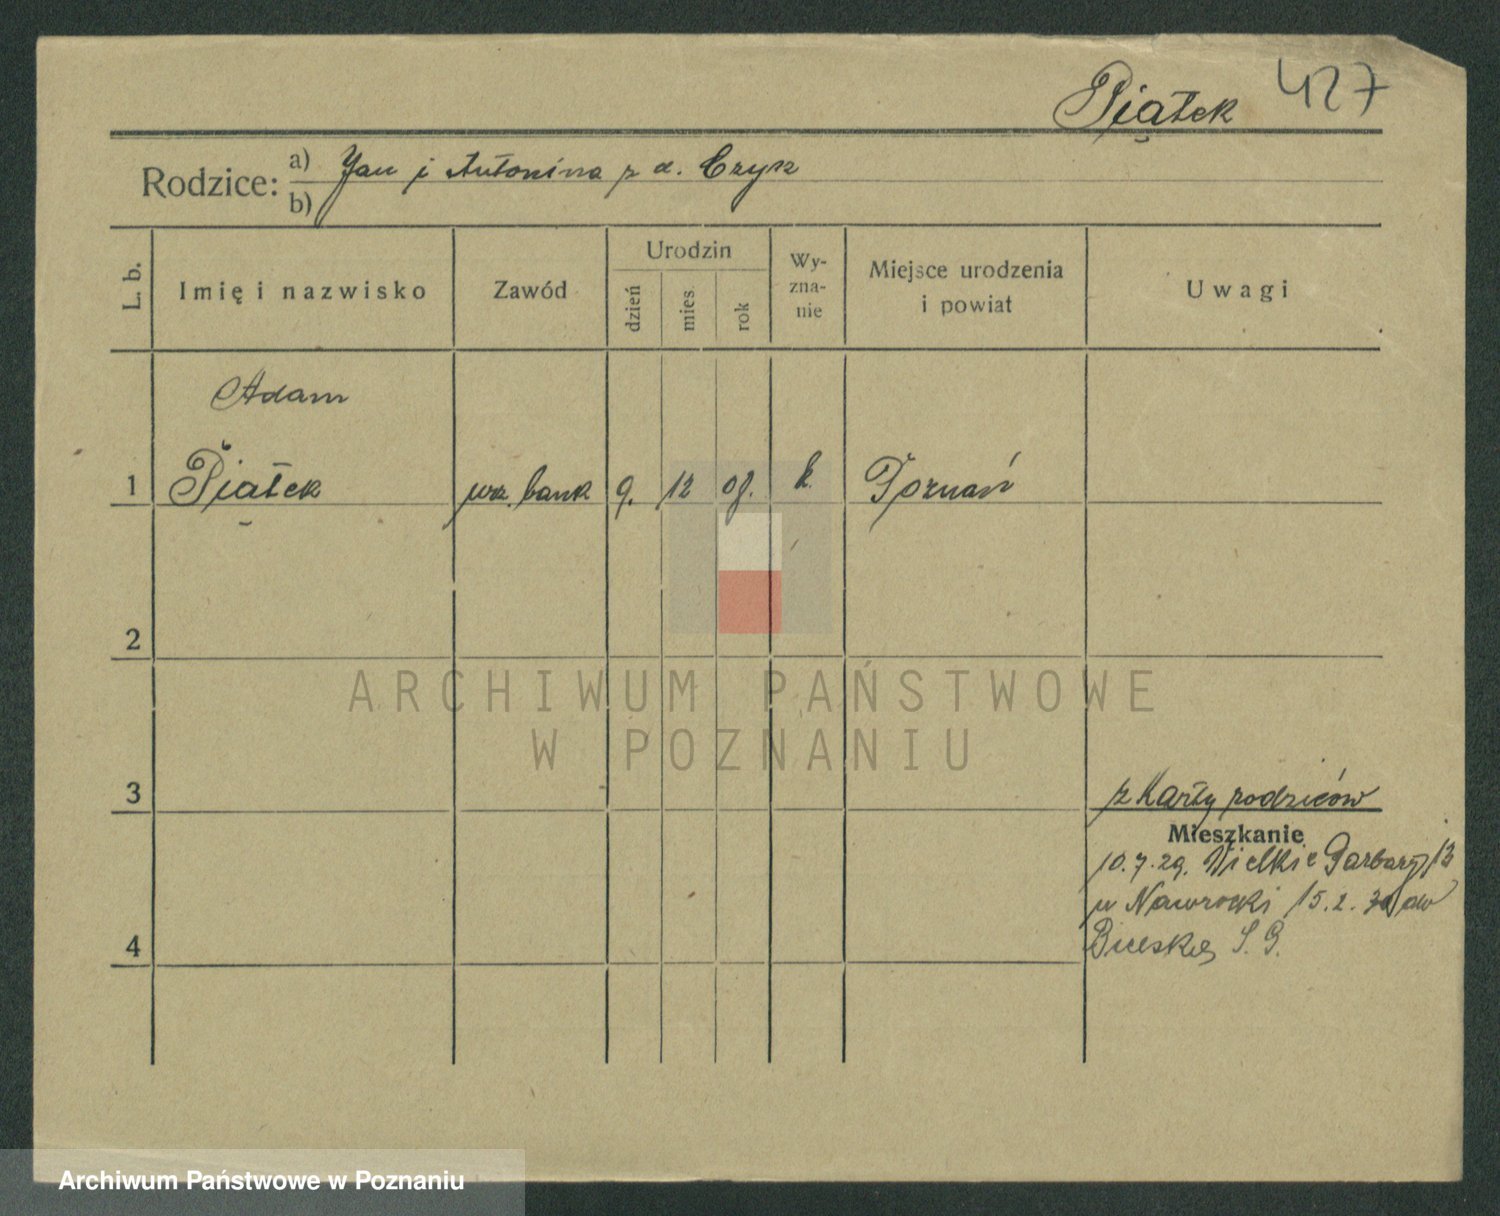 Piątek 427
Rodzice: a) Jan i Antonina z d. Czysz
b)
L. b.
Imię i nazwisko
Zawód
Urodzin
dzień
mies.
rok
Wy-
zna-
nie
Miejsce urodzenia
i powiat
Uwagi
Adam
1 Piątek urz. bank 9. 12 08. k. Poznań
2
ARCHIWUM PAŃSTWOWE
W POZNANIU
3
z Karty rodziców
Mieszkanie
10.7.29. Wielkie Garbary 13
u Nawrocki 15.2. do
4
S. G.
Archiwum Państwowe w Poznaniu